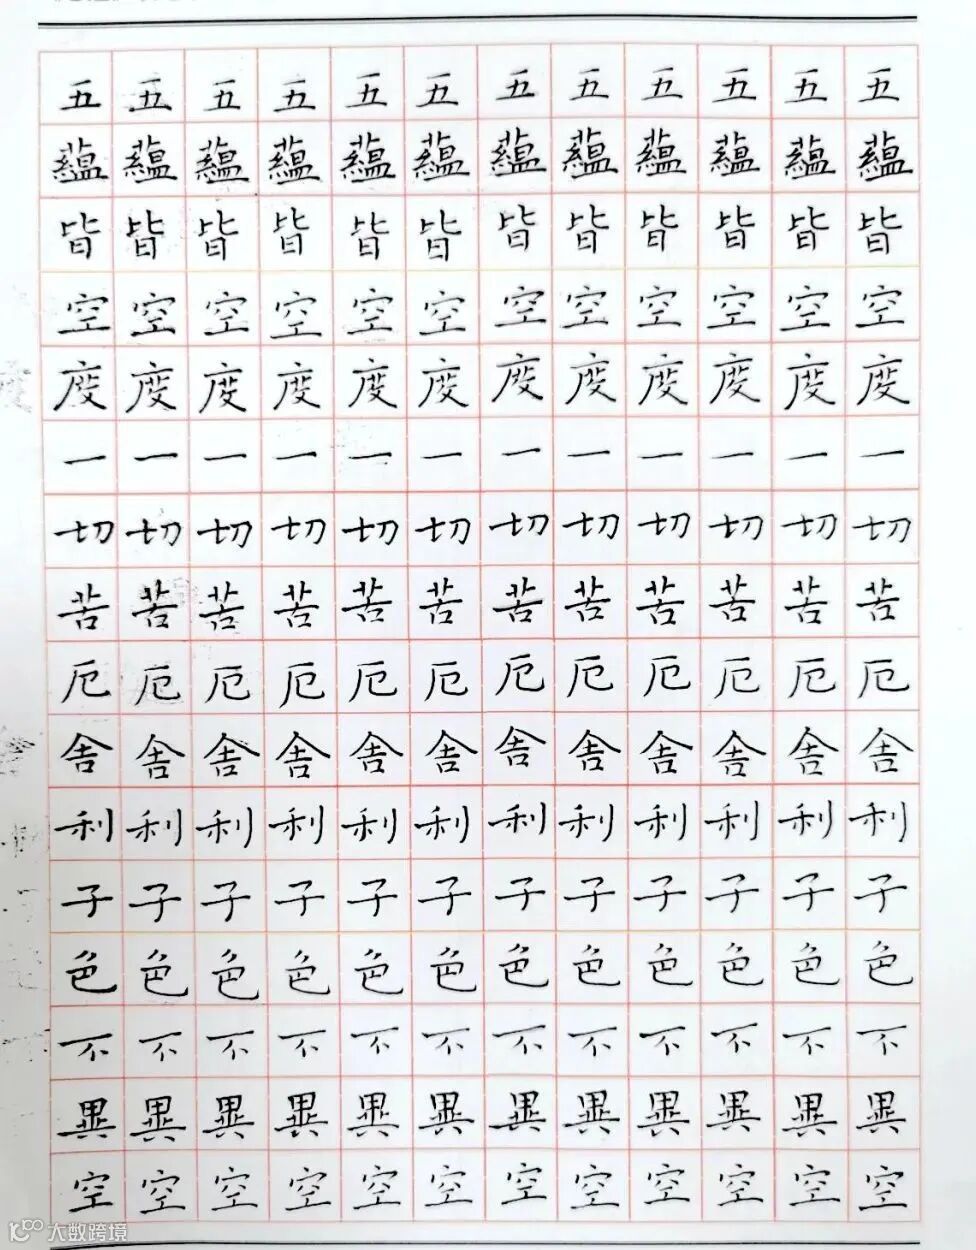 五五五五五五五五五五五五
蘊蘊蘊蘊蘊蘊蘊蘊蘊蘊蘊蘊
皆皆皆皆皆皆皆皆皆皆皆皆
空空空空空空空空空空空空
度度度度度度度度度度度度
一一一一一一一一一一一一
切切切切切切切切切切切切
苦苦苦苦苦苦苦苦苦苦苦苦
厄厄厄厄厄厄厄厄厄厄厄厄
舍舍舍舍舍舍舍舍舍舍舍舍
利利利利利利利利利利利利
子子子子子子子子子子子子
色色色色色色色色色色色色
不不不不不不不不不不不不
異異異異異異異異異異異異
空空空空空空空空空空空空
大数跨境